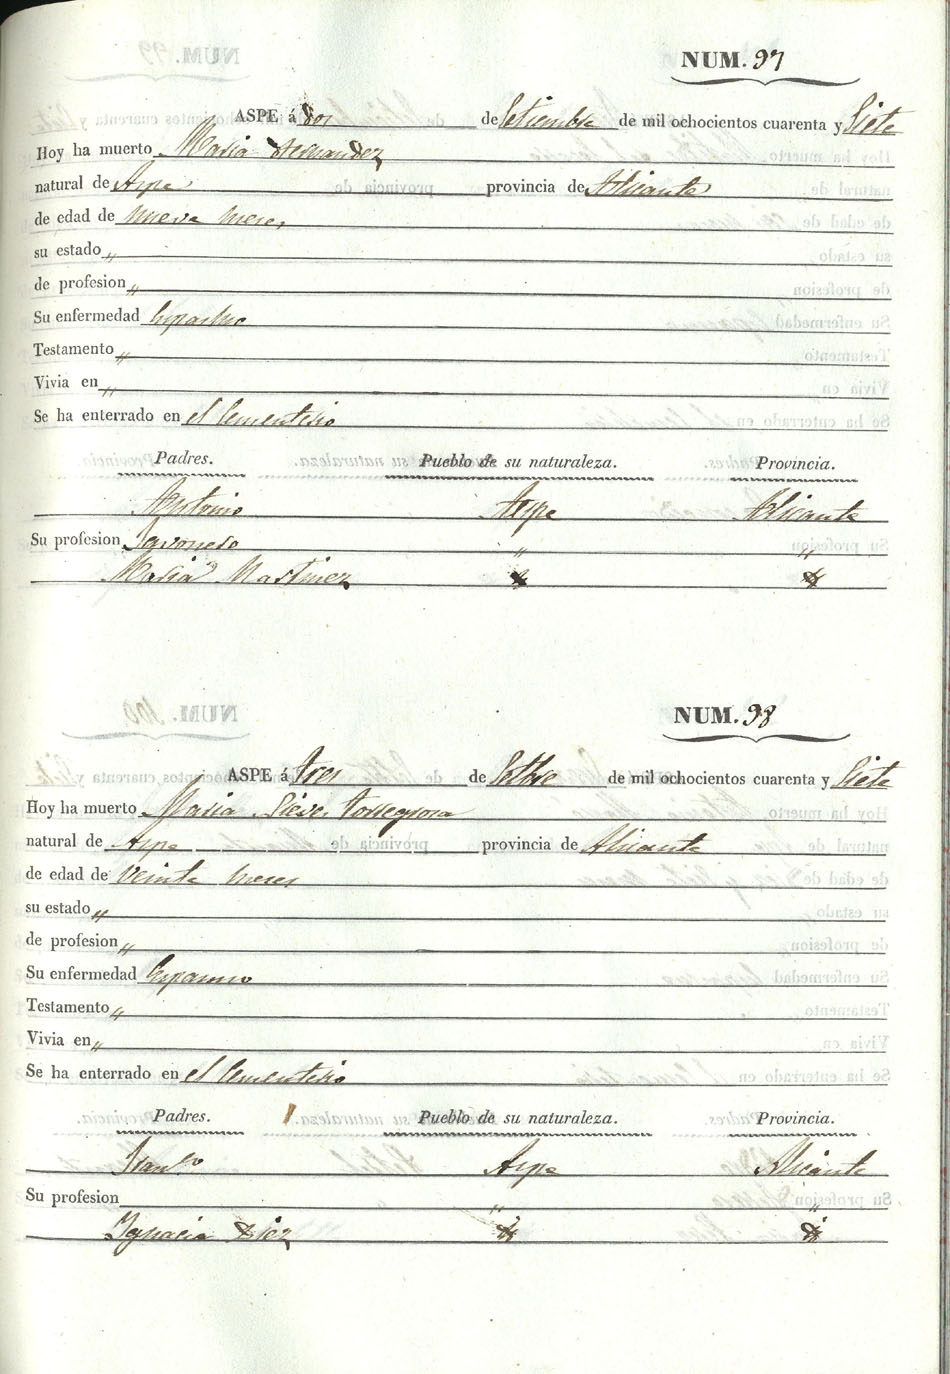 NUM. 97
ASPE á dos de Setiembre de mil ochocientos cuarenta y Siete
Hoy ha muerto Maria Hernandez
natural de Aspe provincia de Alicante
de edad de nueve meses
su estado „
de profesion „
Su enfermedad
Testamento „
Vivia en „
Se ha enterrado en el Cementerio
Padres. Pueblo de su naturaleza. Provincia.
Antonio Aspe Alicante
Su profesion Jornero „ „
Maria Martinez
NUM. 98
ASPE á tres de Setbre de mil ochocientos cuarenta y Siete
Hoy ha muerto Maria Nieves Torregrosa
natural de Aspe provincia de Alicante
de edad de Veinte meses
su estado „
de profesion „
Su enfermedad
Testamento „
Vivia en „
Se ha enterrado en el Cementerio
Padres. Pueblo de su naturaleza. Provincia.
Franco Aspe Alicante
Su profesion „ „
Ignacia Diez